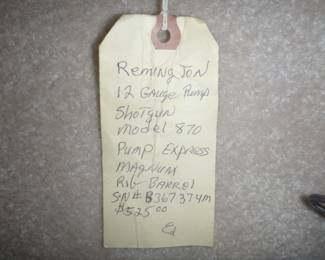 Remington
12 Gauge Pump
Shotgun
Model 870
Pump Express
Magnum
Rib Barrel
SN# B367374M
$525.00
Ed